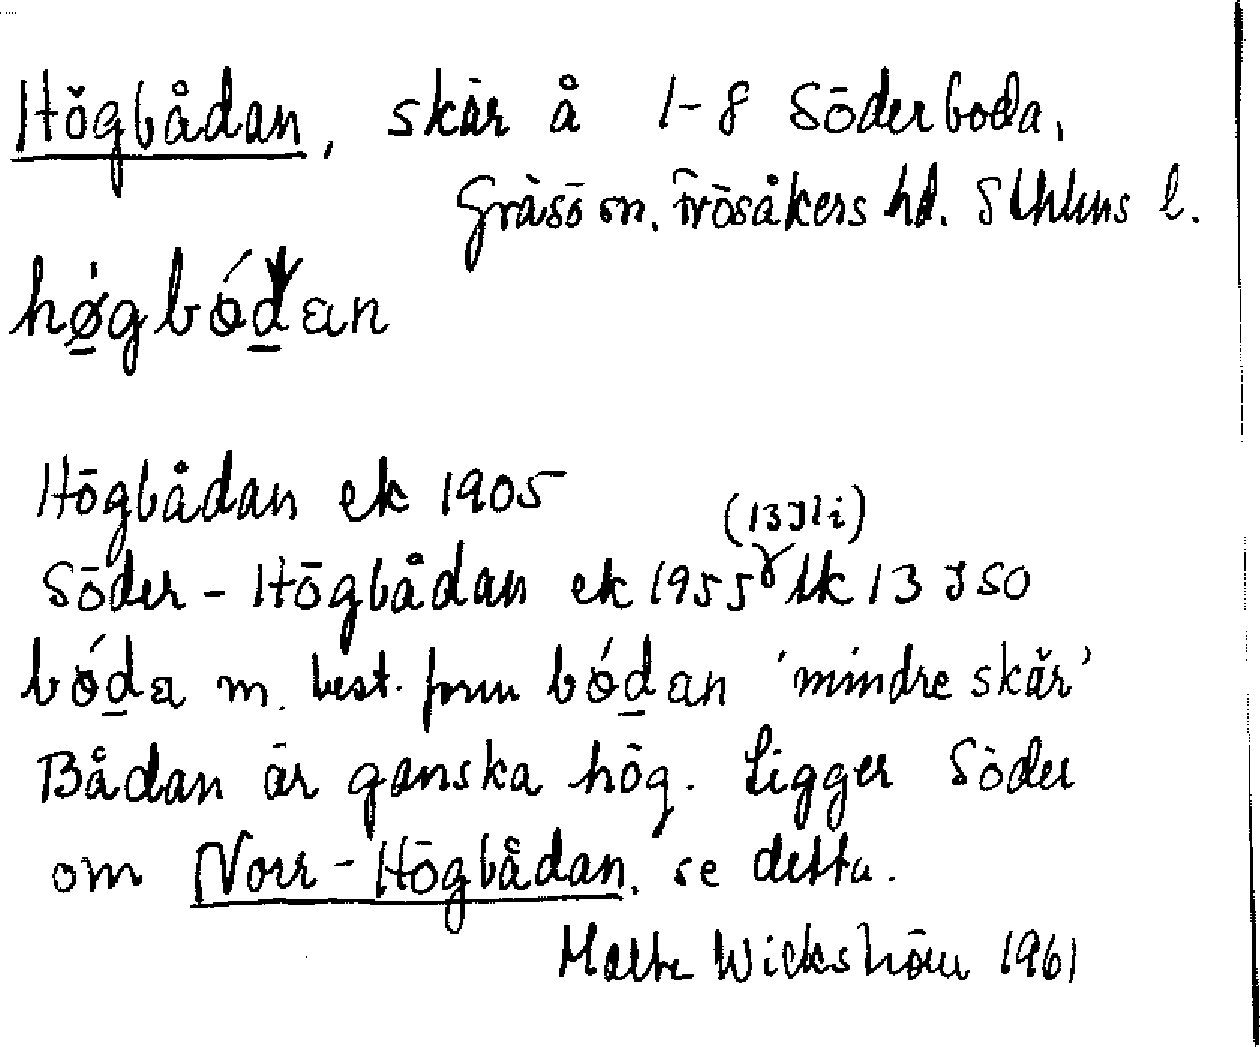 Högbådan, skär å 1-8 Söderboda,
Gräsö sn. Frösåkers hd. Sthlms l.
hø̠̍gbǿd̠an
Högbådan ek 1905
(13 I 1i)
Söder-Högbådan ek 1955 tk 13 I SO
bǿd̠a m. best. form bǿd̠an 'mindre skär'
Bådan är ganska hög. Ligger söder
om Norr-Högbådan, se detta.
Malte Wickström 1961